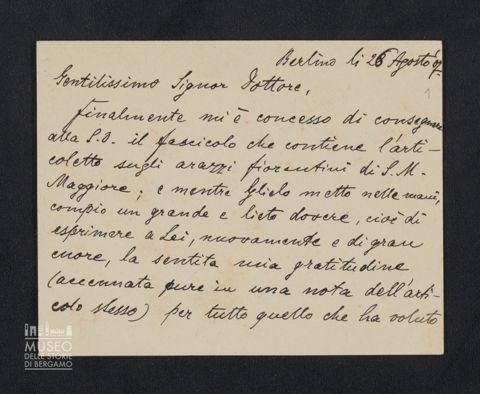 Berlino li 26 Agosto 07
Gentilissimo Signor Dottore,
finalmente mi è concesso di consegnare
alla S.V. il fascicolo che contiene l'arti-
coletto sugli arazzi fiorentini di S. M.
Maggiore; e mentre Glielo metto nelle mani,
compio un grande e lieto dovere, cioè di
esprimere a Lei, nuovamente e di gran
cuore, la sentita mia gratitudine
(accennata pure in una nota dell'arti-
colo stesso) per tutto quello che ha voluto
1
MUSEO
DELLE STORIE
DI BERGAMO